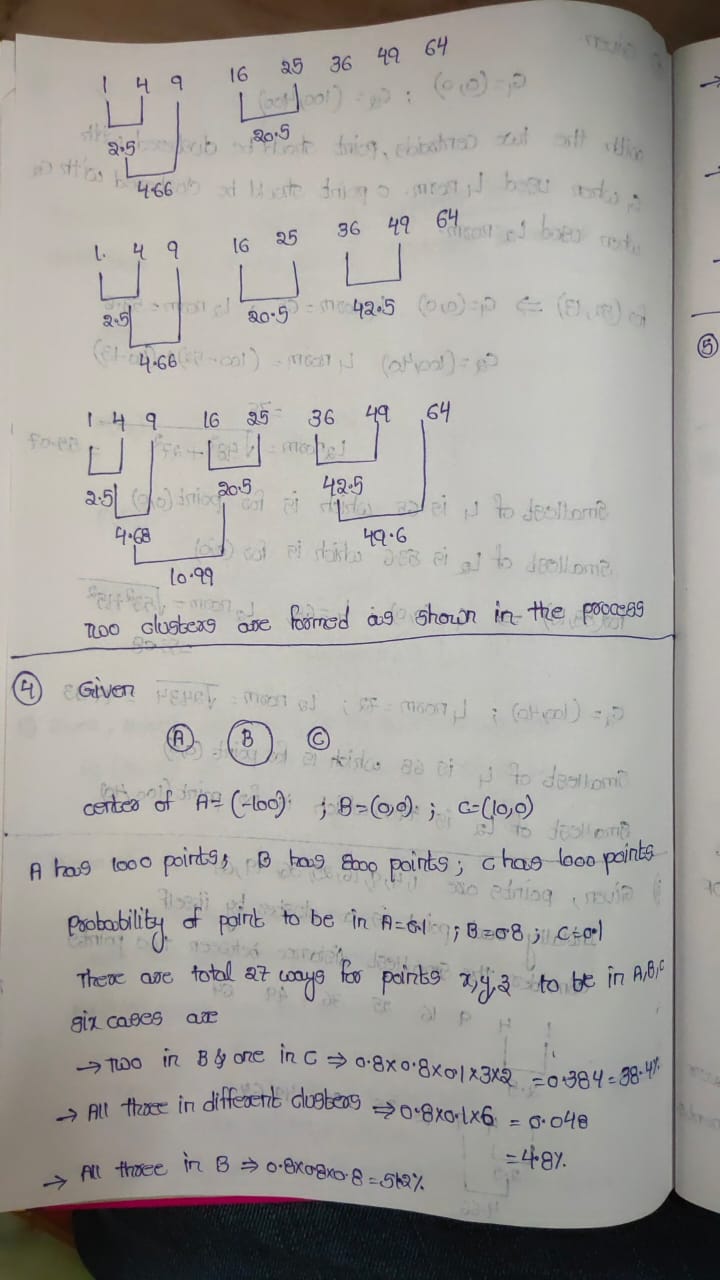 1 4 9 16 25 36 49 64
2.5 20.5
4.66
1. 4 9 16 25 36 49 64
2.5 20.5 42.5
4.66
1 4 9 16 25 36 49 64
2.5 20.5 42.5
4.68 49.6
10.99
Two clusters are formed as shown in the process
④ Given
A B C
center of A = (-100) ; B = (0,0) ; C = (10,0)
A has 1000 points; B has 8000 points; C has 1000 points
probability of point to be in A = 0.1 ; B = 0.8 ; C = 0.1
There are total 27 ways for points x,y,z to be in A,B,C
six cases are
→ Two in B & one in C ⇒ 0.8x0.8x0.1x3x2 = 0.384 = 38.4%
→ All three in different clusters ⇒ 0.8x0.1x6 = 0.048
= 4.8%.
→ All three in B ⇒ 0.8x0.8x0.8 = 512%
⑤